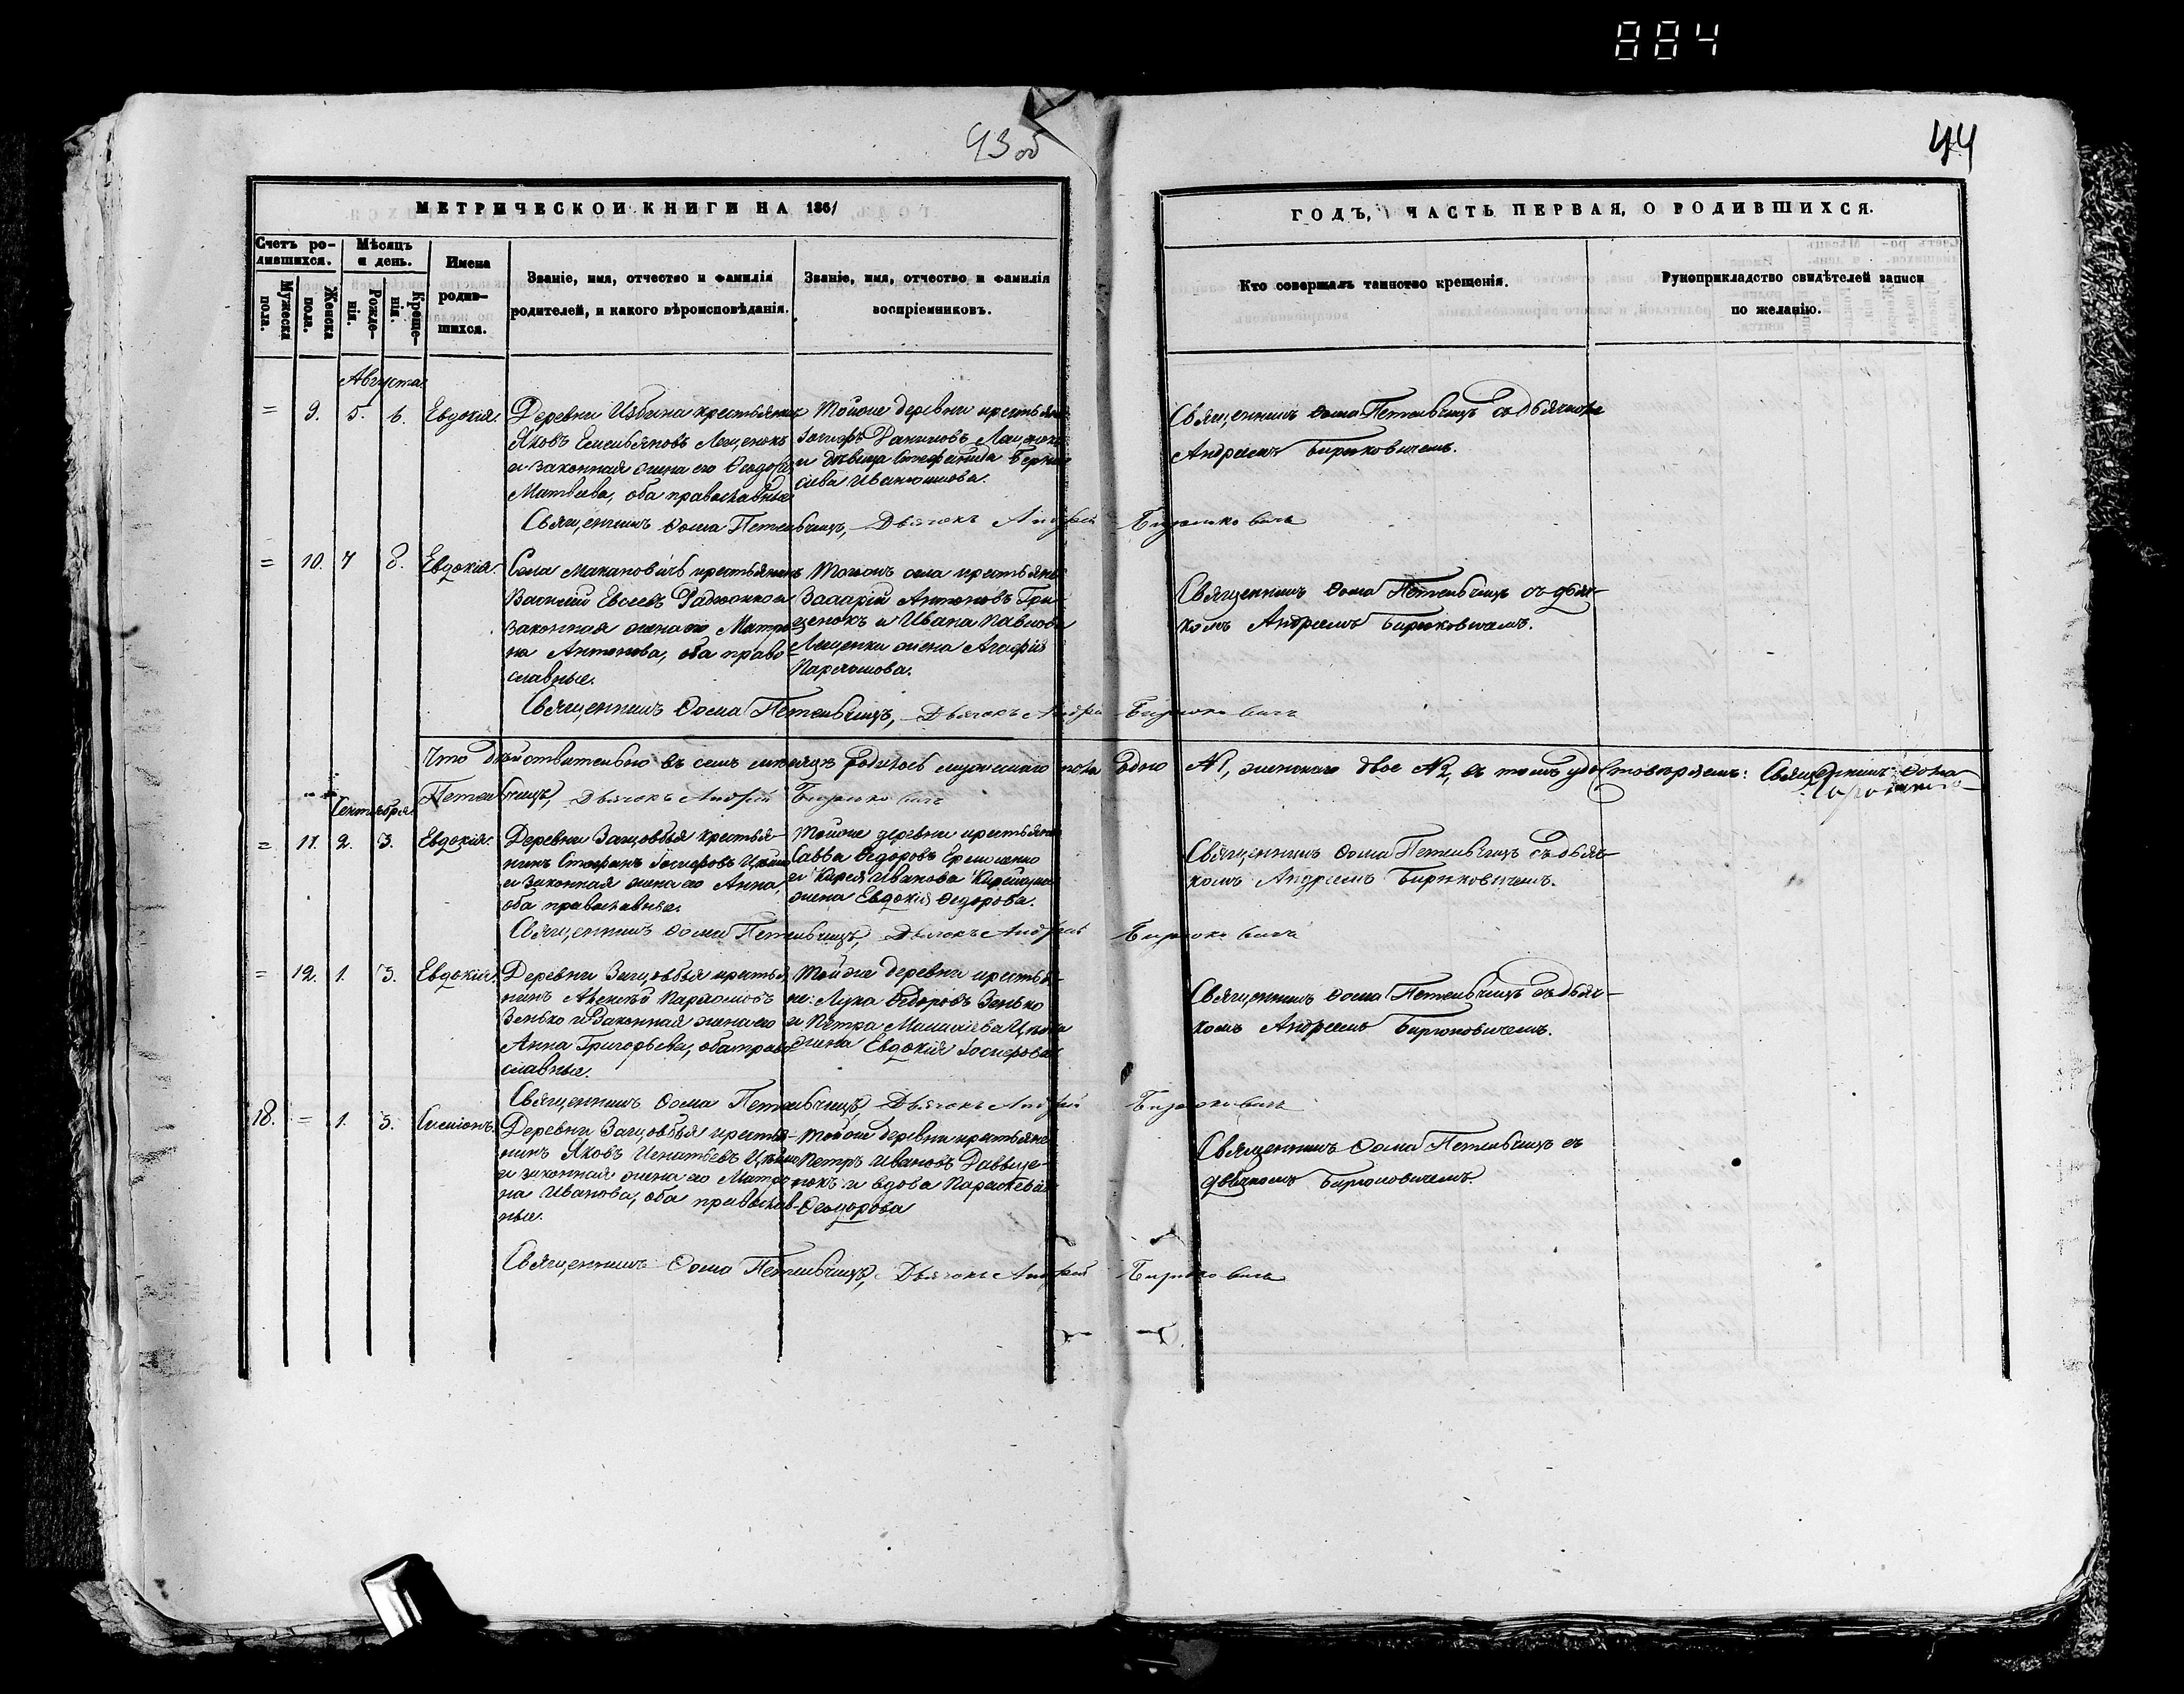 884
43 об
44
МЕТРИЧЕСКОЙ КНИГИ НА 1861
ГОДЪ, ЧАСТЬ ПЕРВАЯ, О РОДИВШИХСЯ.
Счетъ ро-
дившихся.
Мужеска
пола.
Женска
пола.
Мѣсяцъ
и день.
Рожде-
нія.
Креще-
нія.
Имена
родив-
шихся.
Званіе, имя, отчество и фамилія
родителей, и какого вѣроисповѣданія.
Званіе, имя, отчество и фамилія
воспріемниковъ.
Кто совершалъ таинство крещенія.
Рукоприкладство свидѣтелей записи
по желанію.
Августа
= 9. 5. 6. Евдокія.
Деревни крестьянинъ
Яковъ Емельяновъ Лещенокъ
и законная жена его Ѳеодосія
Матвѣева, оба православные
Тойже деревни крестьяне
Іосифъ Даниловъ Лещенокъ
и дѣвица Стефанида
Иванюшова.
Священникъ Ѳома Петельчицъ съ дьячкомъ
Андреемъ Бирюковичемъ.
Священникъ Ѳома Петельчицъ, Дьячокъ Андрей Бирюковичъ
= 10. 7 8. Евдокія.
Села Макановичь крестьянинъ
Василій Евсеевъ и
законная жена его Матро-
на Антонова, оба право-
славные.
Тогожъ села крестьяне
Захарій Антоновъ Гри-
ценокъ и Ивана Павлова
Лещенки жена Агафія
Пархомова.
Священникъ Ѳома Петельчицъ съ дьяч-
комъ Андреемъ Бирюковичемъ.
Священникъ Ѳома Петельчицъ, Дьячокъ Андрей Бирюковичъ
Что дѣйствительно въ семъ мѣсяцѣ родилось мужескаго пола одно №1, женскаго двое №2, въ томъ удостовѣряемъ: Священникъ Ѳома
Петельчицъ, Дьячокъ Андрей Бирюковичъ
Сентября
= 11. 2. 3. Евдокія.
Деревни Защовбья крестья-
нинъ Стефанъ Іосифовъ Цѣпко
и законная жена его Анна,
оба православные.
Тойже деревни крестьяне
Савва Ѳедоровъ Ермоленко
и Кирея Иванова
жена Евдокія Ѳедорова.
Священникъ Ѳома Петельчицъ съ дьяч-
комъ Андреемъ Бирюковичемъ.
Священникъ Ѳома Петельчицъ, Дьячокъ Андрей Бирюковичъ
= 12. 1. 3. Евдокія.
Деревни Защовбья крестья-
нинъ Алексѣй Пархомовъ
Зенько и законная жена его
Анна Григорьева, оба право-
славные.
Тойже деревни крестья-
не: Лука Ѳедоровъ Зенько
и Петра
жена Евдокія Іосифова
Священникъ Ѳома Петельчицъ съ дьяч-
комъ Андреемъ Бирюковичемъ.
Священникъ Ѳома Петельчицъ, Дьячокъ Андрей Бирюковичъ
18. = 1. 3. Симеонъ.
Деревни Защовбья крестья-
нинъ Яковъ Игнатьевъ Цѣпко
и законная жена его Матро-
на Иванова, оба православ-
ные.
Тойже деревни крестьяне
Петръ Ивановъ Давыде-
нокъ и вдова Параскева
Ѳеодорова
Священникъ Ѳома Петельчицъ съ
дьячкомъ Бирюковичемъ
Священникъ Ѳома Петельчицъ, Дьячокъ Андрей Бирюковичъ